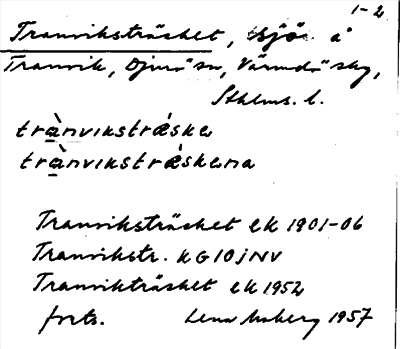 1-2
Tranviksträsket, sjö å
Tranvik, Djurö sn, Värmdö skg,
Sthlms. l.
trànvikstrǽske
trànvikstrǽskena
Tranviksträsket ek 1901-06
Tranvikstr. KG 10 j NV
Tranvikträsket ek 1952
forts. Lena Moberg 1957